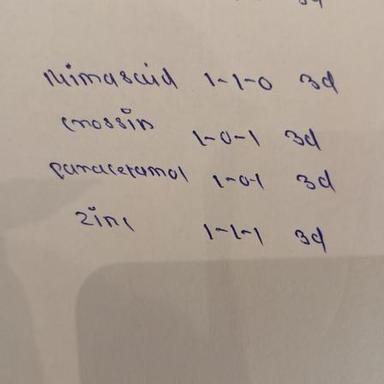 1-1-0 3d
crossin 1-0-1 3d
paracetamol 1-0-1 3d
zinc 1-1-1 3d